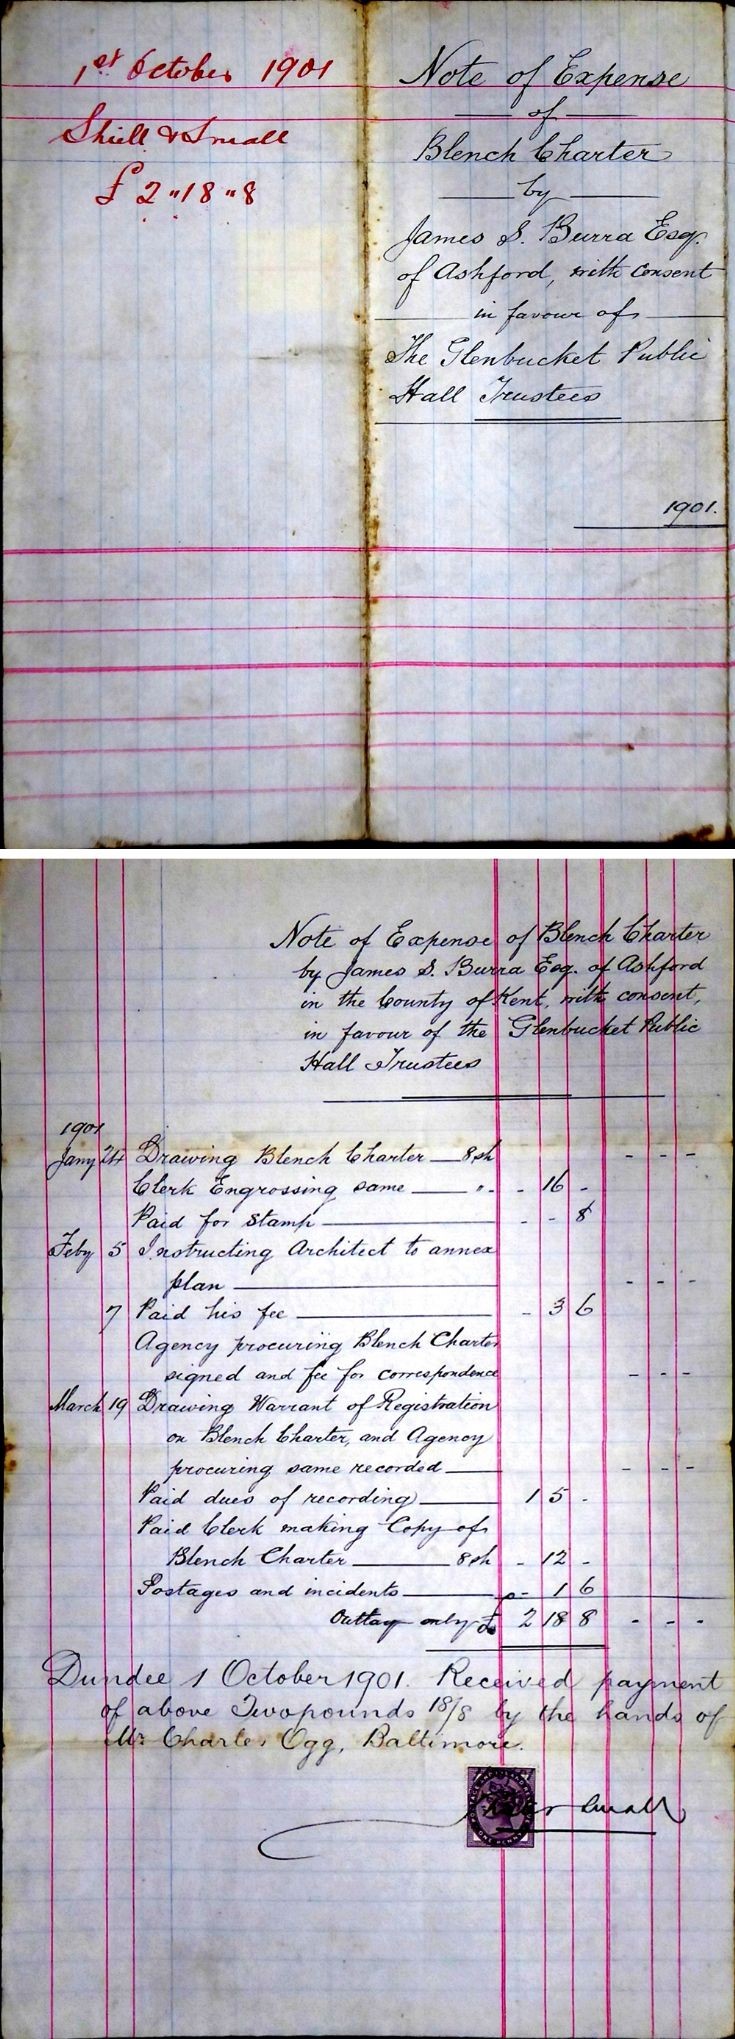 1st October 1901
Shiell & Small
£2 "18 "8
Note of Expense
of
Blench Charter
by
James S. Burra Esq.
of Ashford, with consent
in favour of
The Glenbucket Public
Hall Trustees
1901.
Note of Expense of Blench Charter
by James S. Burra Esq. of Ashford
in the County of Kent, with consent,
in favour of the Glenbucket Public
Hall Trustees
1901
Jany 24 Drawing Blench Charter — 8 sh - - -
Clerk Engrossing same — " - 16 -
Paid for Stamp — - - 8
Feby 5 Instructing Architect to annex
plan — - - -
7 Paid his fee — - 3 6
Agency procuring Blench Charter
signed and fee for correspondence - - -
March 19 Drawing Warrant of Registration
on Blench Charter, and Agency
procuring same recorded — - - -
Paid dues of recording — 1 5 -
Paid Clerk making Copy of
Blench Charter — 8 sh - 12 -
Postages and incidents — - 1 6
Outlay only £ 2 18 8 - - -
Dundee 1 October 1901. Received payment
of above Two pounds 18/8 by the hands of
Mr Charles Ogg, Baltimore.
Small